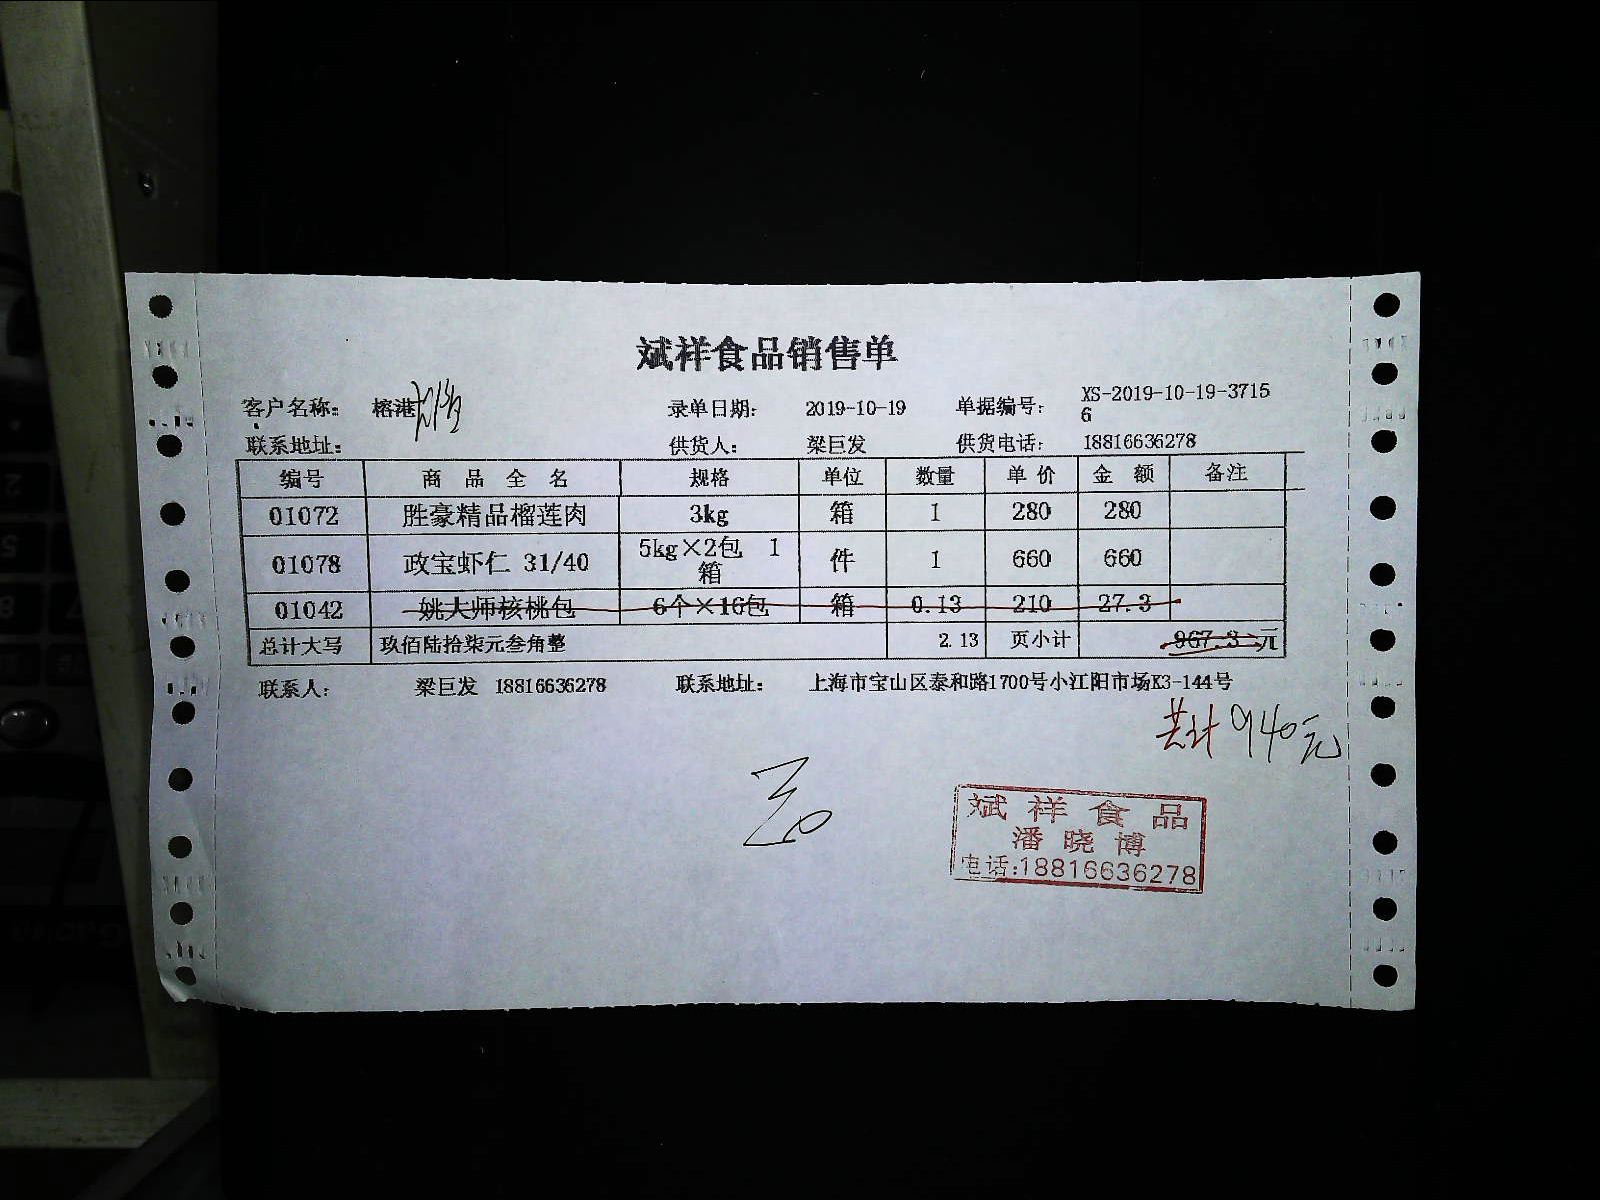 斌祥食品销售单
客户名称： 榕港 录单日期： 2019-10-19 单据编号： XS-2019-10-19-3715
6
联系地址： 供货人： 梁巨发 供货电话： 18816636278
编号 商品全名 规格 单位 数量 单价 金额 备注
01072 胜豪精品榴莲肉 3kg 箱 1 280 280
01078 政宝虾仁 31/40 5kg×2包 1箱 件 1 660 660
01042 姚大师核桃包 6个×16包 箱 0.13 210 27.3
总计大写 玖佰陆拾柒元叁角整 2.13 页小计 967.3元
联系人： 梁巨发 18816636278 联系地址： 上海市宝山区泰和路1700号小江阳市场K3-144号
共计940元
斌祥食品
潘晓博
电话:18816636278